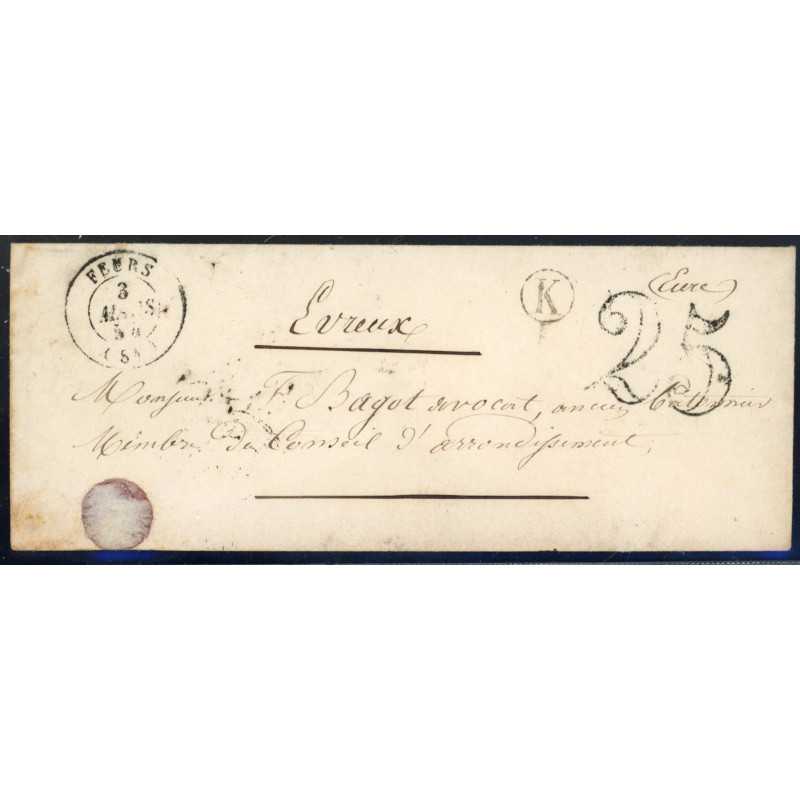 FEURS
3
54
(84)
K
(Eure)
25
Evreux
Monsieur F. Bagot avocat, ancien
Membre du Conseil d'arrondissement,